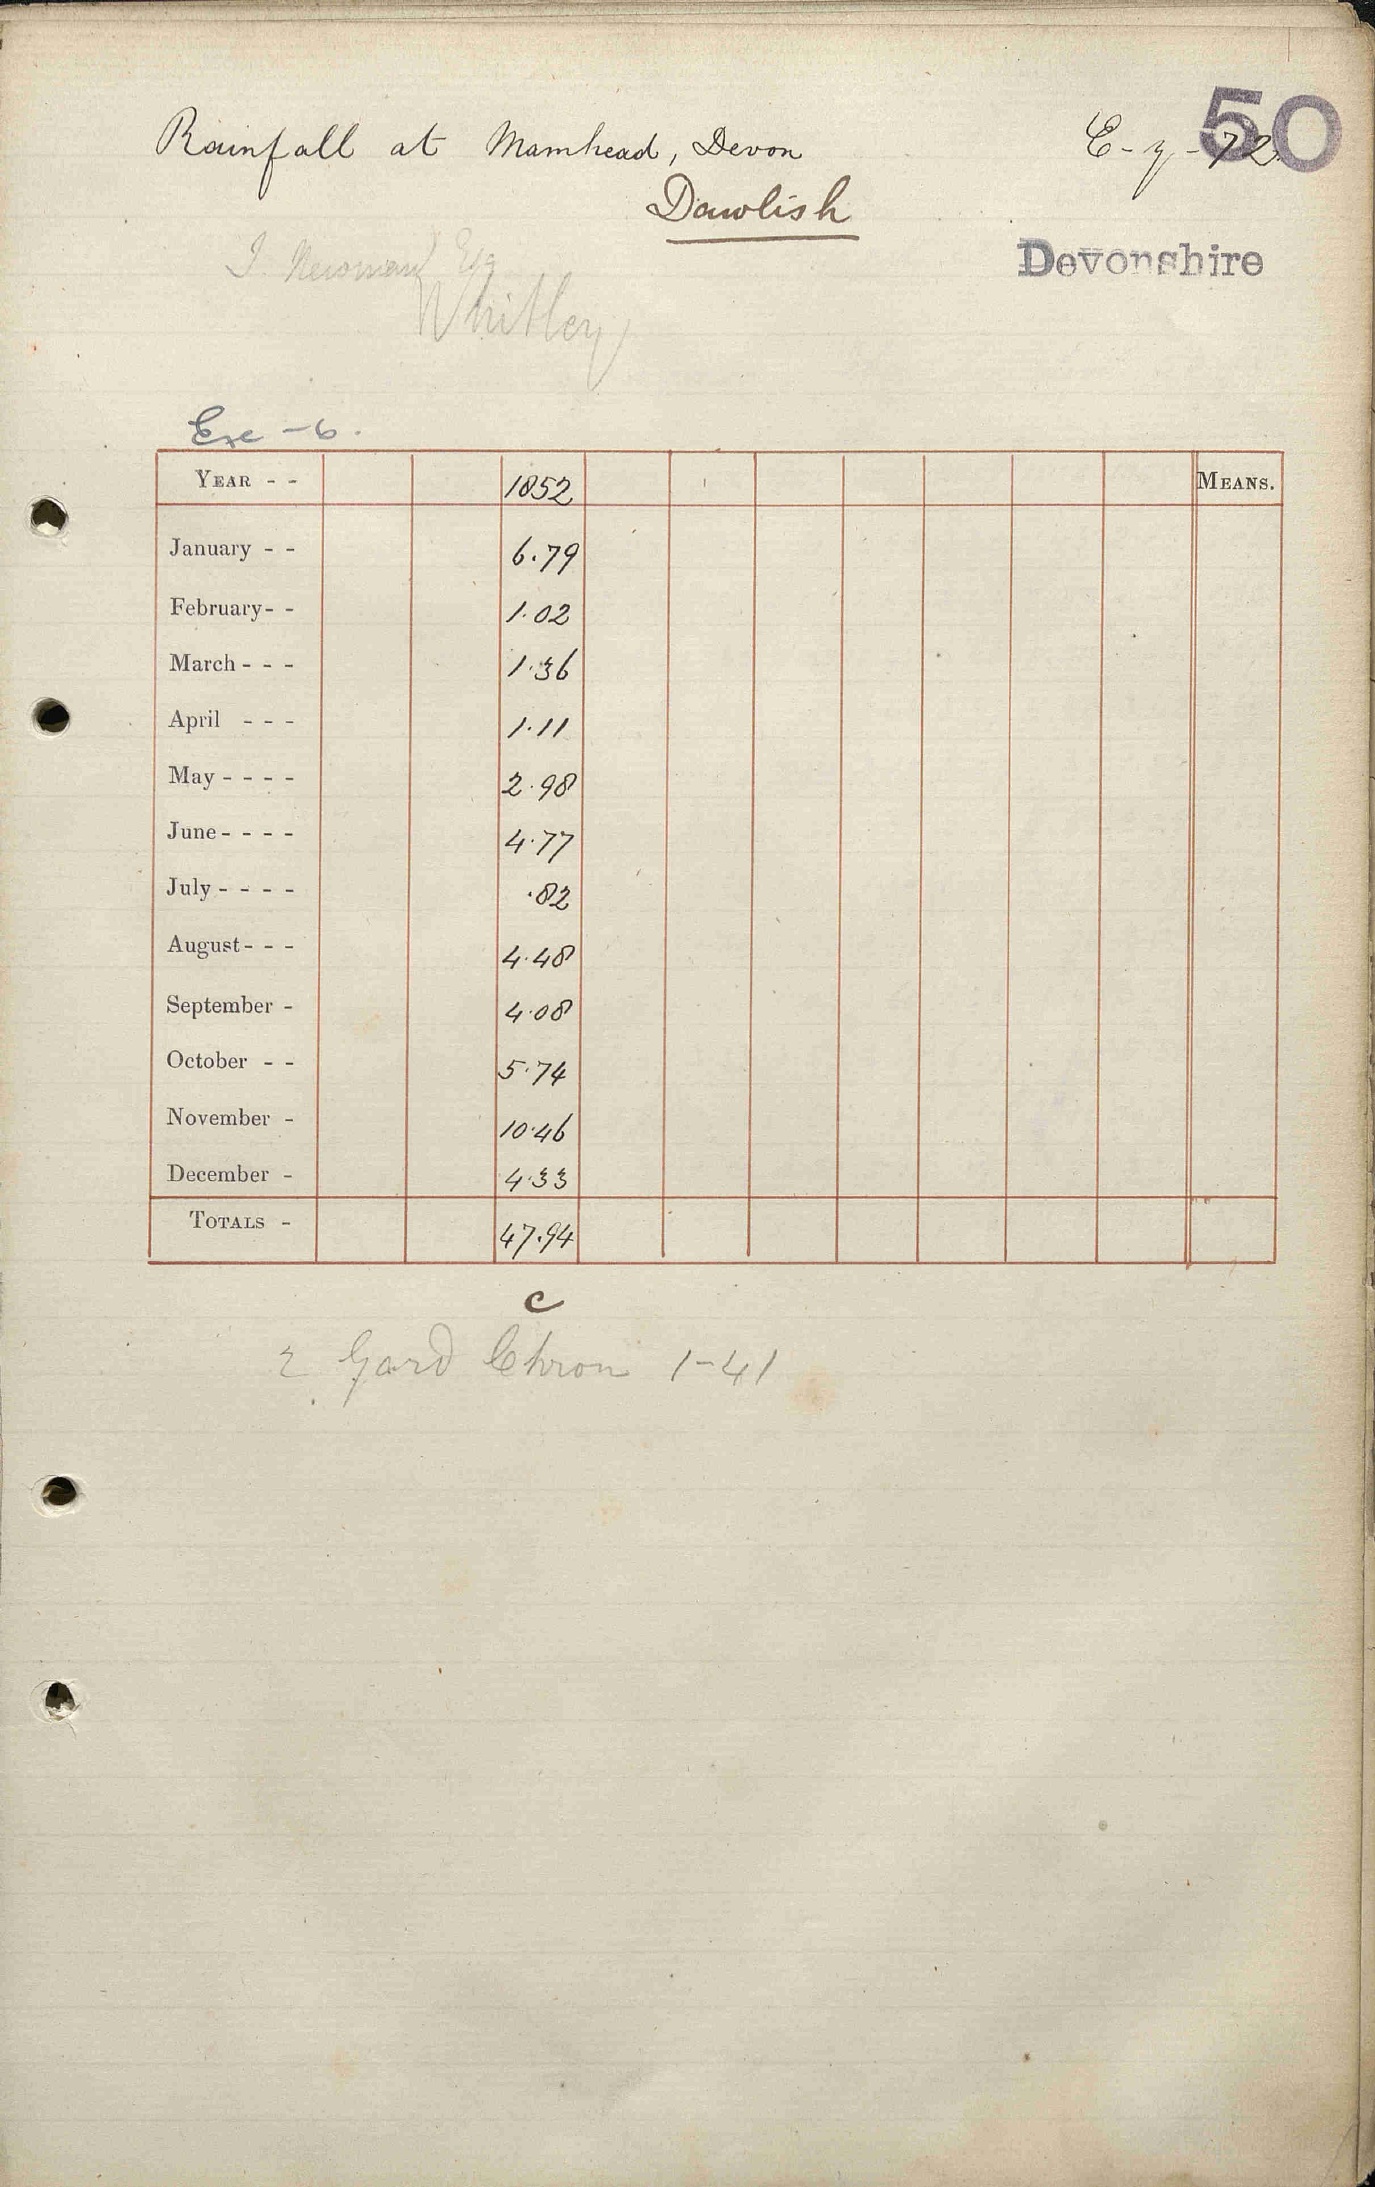 50
Rainfall at Mamhead, Devon E-y-72
Dawlish
Devonshire
J. Newman Esq
Whitley
Exe - 6.
YEAR - - 1852 MEANS.
January - - 6.79
February - - 1.02
March - - - 1.36
April - - - 1.11
May - - - - 2.98
June - - - - 4.77
July - - - - .82
August - - - 4.48
September - 4.08
October - - 5.74
November - 10.46
December - 4.33
TOTALS - 47.94
c
Gard Chron 1-41